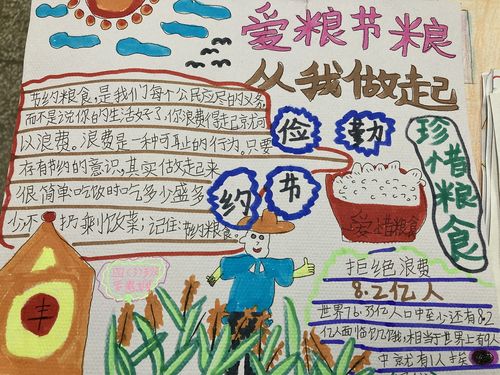 爱粮节粮
从我做起
节约粮食,是我们每个公民应尽的义务,
而不是说你的生活好了,你浪费得起就可
以浪费。浪费是一种可耻的行为。只要
存有节约的意识,其实做起来
很简单吃饭时吃多少盛多
少不扔剩饭菜;记住:节约粮食。
勤
俭
节
约
珍惜粮食
爱惜粮食
拒绝浪费
8.2亿人
世界76.33亿人口中至少还有8.2
亿人面临饥饿,相当于世界上有9人
中就有1人挨
丰